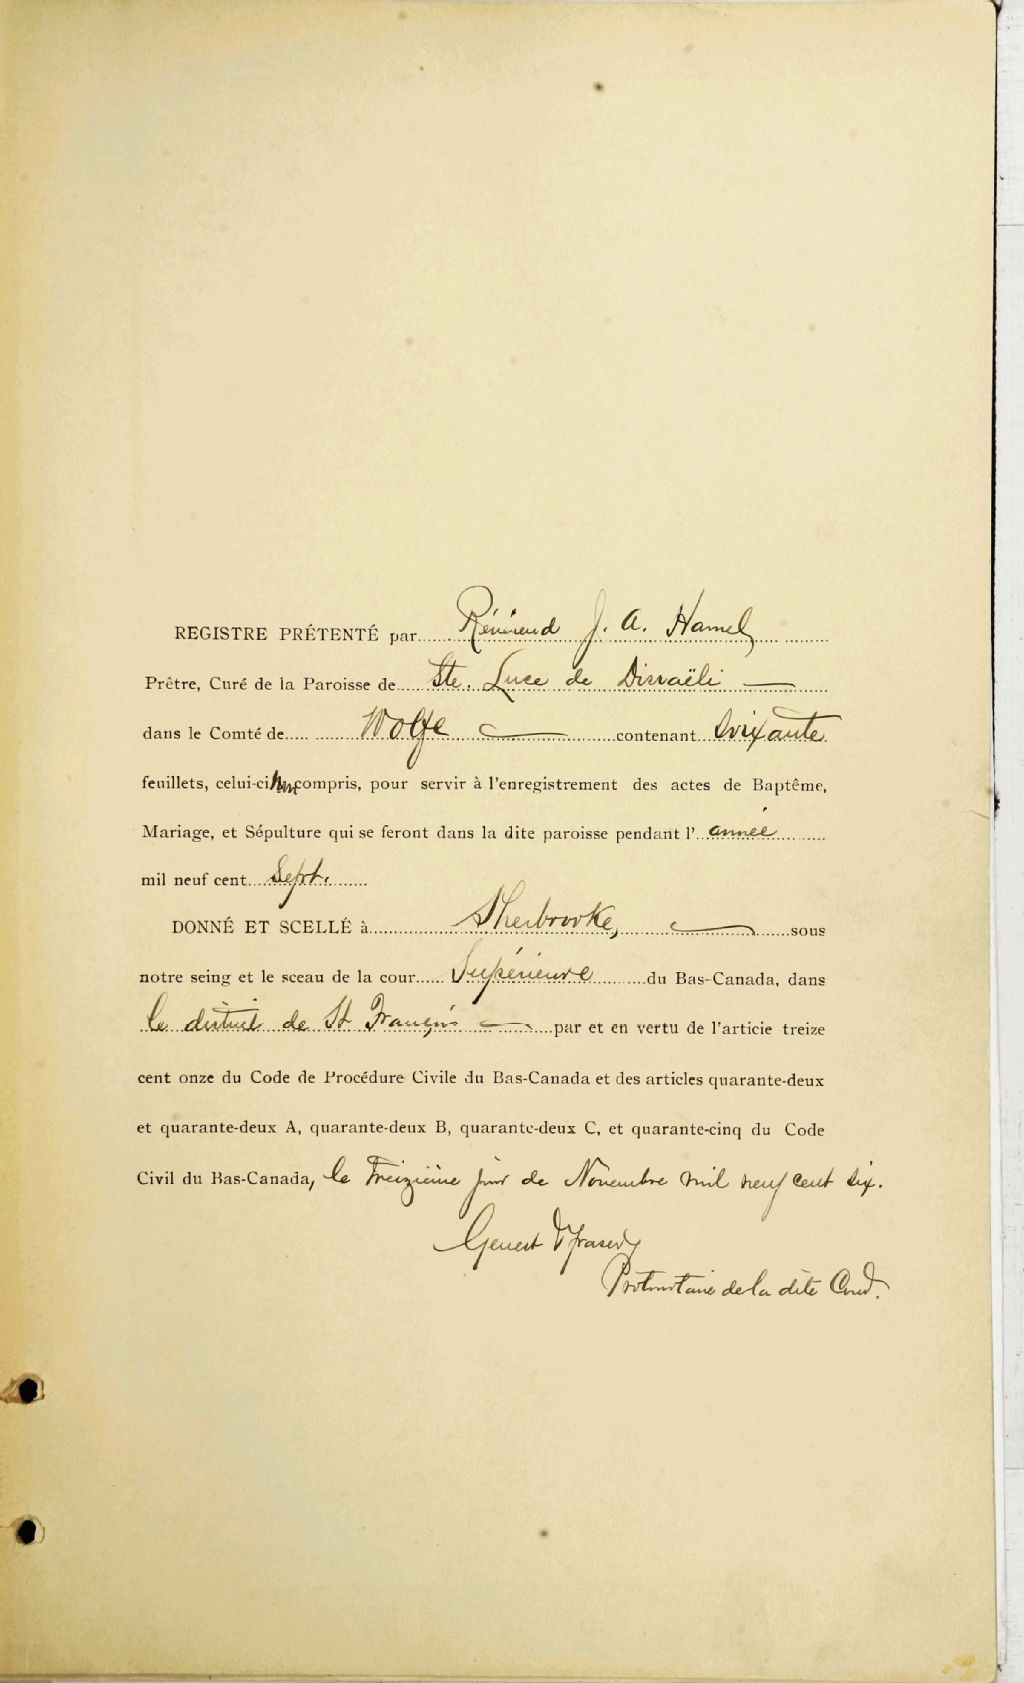 REGISTRE PRÉTENTÉ par Révérend J. A. Hamel
Prêtre, Curé de la Paroisse de Ste. Luce de Disraëli
dans le Comté de Wolfe contenant soixante
feuillets, celui-ci compris, pour servir à l'enregistrement des actes de Baptême,
Mariage, et Sépulture qui se feront dans la dite paroisse pendant l' année
mil neuf cent Sept.
DONNÉ ET SCELLÉ à Sherbrooke, sous
notre seing et le sceau de la cour Supérieure du Bas-Canada, dans
le district de St François par et en vertu de l'articie treize
cent onze du Code de Procédure Civile du Bas-Canada et des articles quarante-deux
et quarante-deux A, quarante-deux B, quarante-deux C, et quarante-cinq du Code
Civil du Bas-Canada, le Treizième jour de Novembre mil neuf cent six.
Genest & Fraser
Protonotaire de la dite Cour.